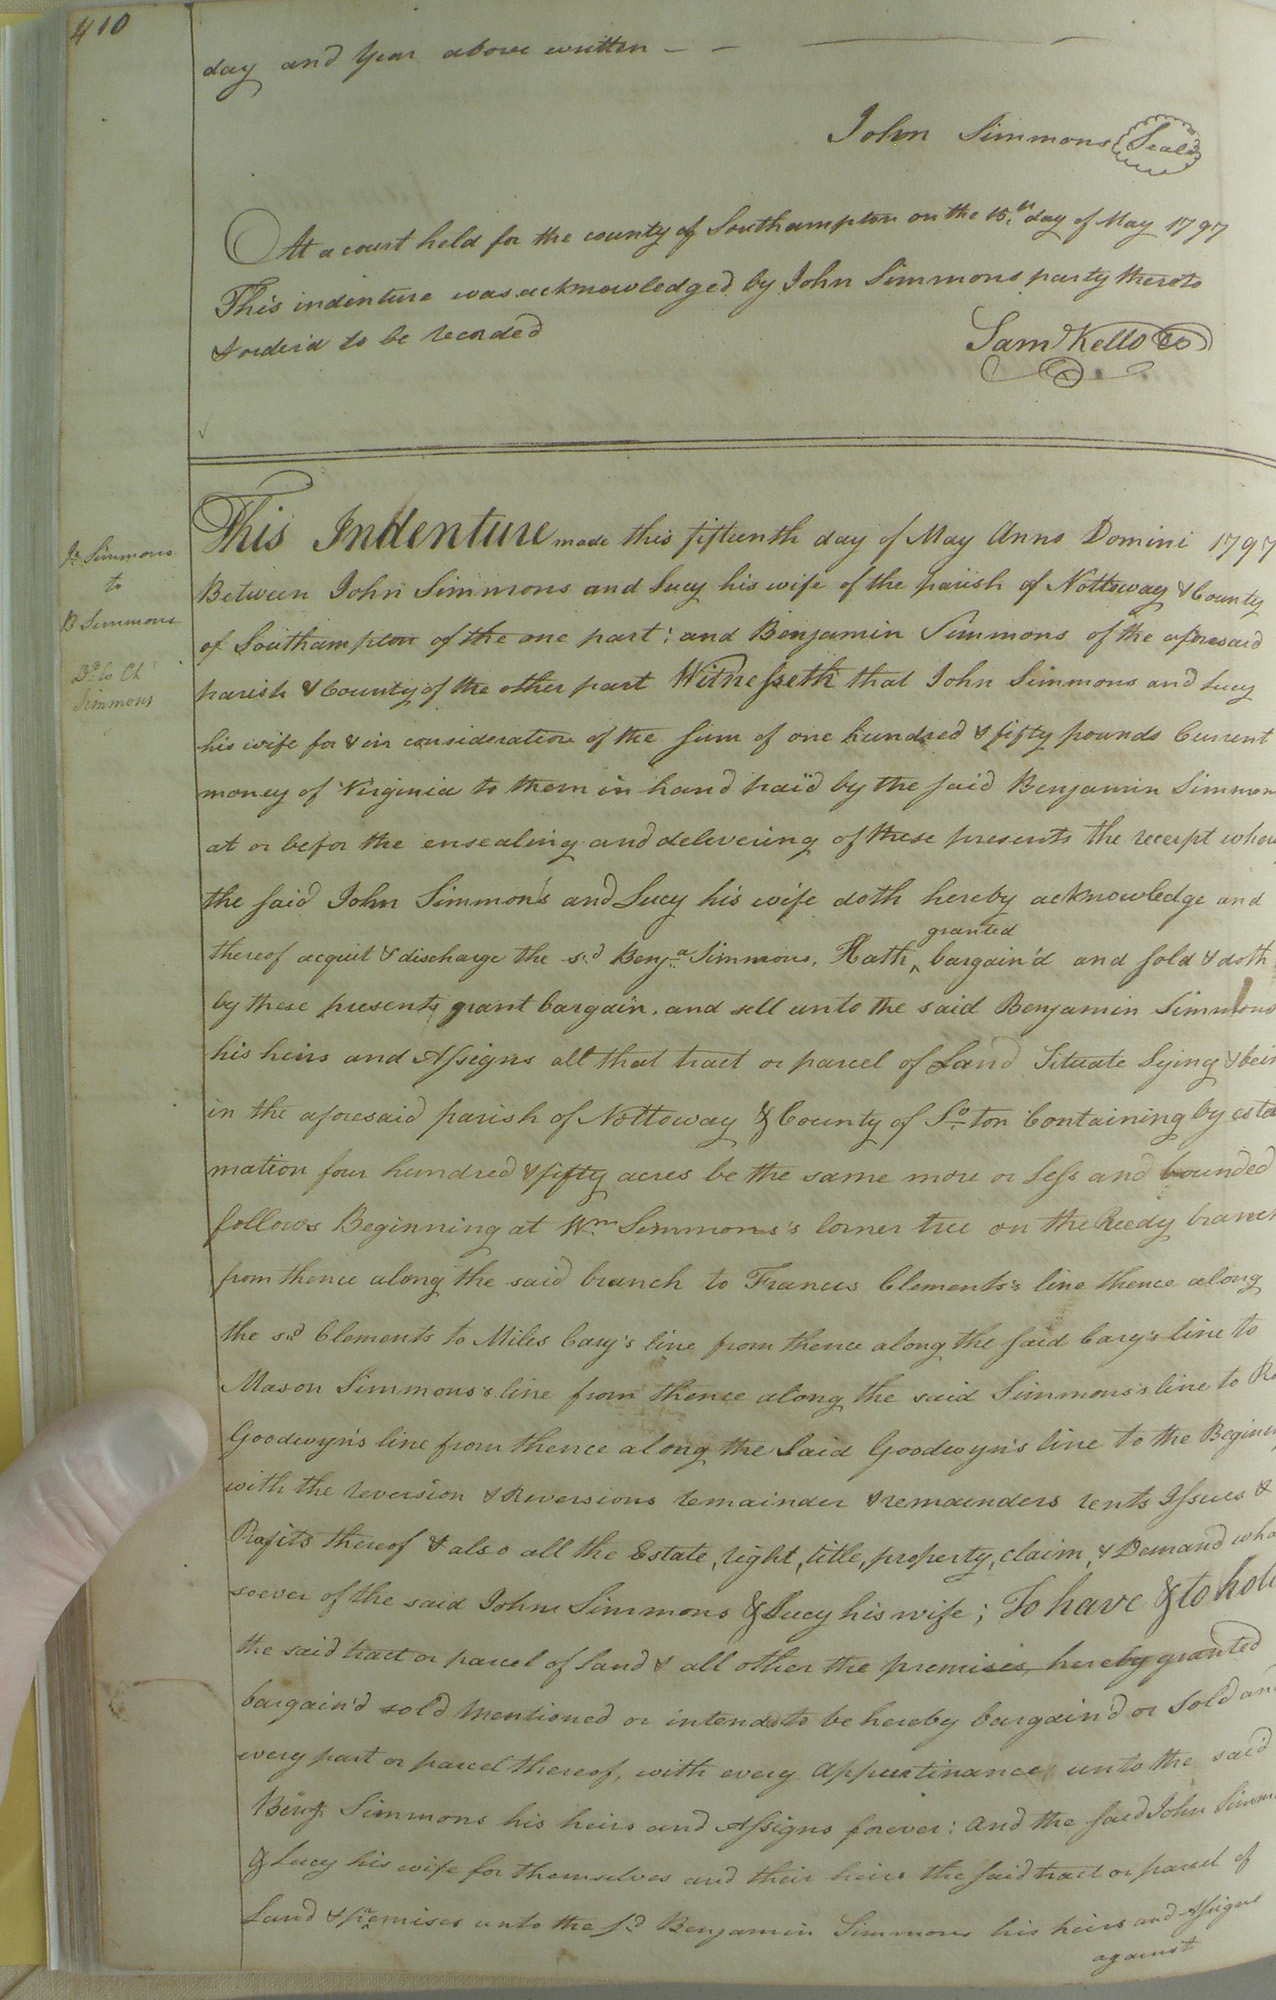 410
day and Year above written
John Simmons Seal
At a court held for the county of Southampton on the 15.th day of May 1797
This indenture was acknowledged by John Simmons party thereto
& orderd to be recorded
Saml Kello CC
This Indenture made this fifteenth day of May Anno Domini 1797
Jn Simmons
to
B Simmons
Do to Ck
Simmons
Between John Simmons and Lucy his wife of the parish of Nottoway & County
of Southampton of the one part; and Benjamin Simmons of the aforesaid
parish & County of the other part Witnesseth that John Simmons and Lucy
his wife for & in consideration of the sum of one hundred & fifty pounds Current
money of Virginia to them in hand paid by the said Benjamin Simmon
at or befor the ensealing and delivering of these presents the receipt where
the said John Simmon's and Lucy his wife doth hereby acknowledge and
granted
thereof acquit & discharge the sd Benja Simmons. Hath ^ bargain'd and sold & doth
by these presents grant bargain, and sell unto the said Benjamin Simmons
his heirs and Assigns all that tract or parcel of Land Situate Lying & bein
in the aforesaid parish of Nottoway & County of So.ton Containing by esta
mation four hundred & fifty acres be the same more or less and bounded
follows Beginning at Wm Simmons's corner tree on the Reedy branch
from thence along the said branch to Francis Clements's line thence along
the sd Clements to Miles Cary's line from thence along the said Cary's line to
Mason Simmons's line from thence along the said Simmons's line to
Goodwyn's line from thence along the Said Goodwyn's line to the Beginn
with the reversion & Reversions remainder & remainders rents Issues &
Profits thereof & also all the Estate, right, title, property, claim, & Demand wha
soever of the said John Simmons & Lucy his wife; To have & to hold
the said tract or parcel of land & all other the premises, hereby granted
bargain'd sold Mentioned or intended to be hereby bargain'd or Sold an
every part or parcel thereof, with every Appurtinance unto the said
Benj. Simmons his heirs and Assigns forever: And the said John Simm
& Lucy his wife for themselves and their heirs the said tract or parcel of
Land & premises unto the sd Benjamin Simmons his heirs and Assigns
against